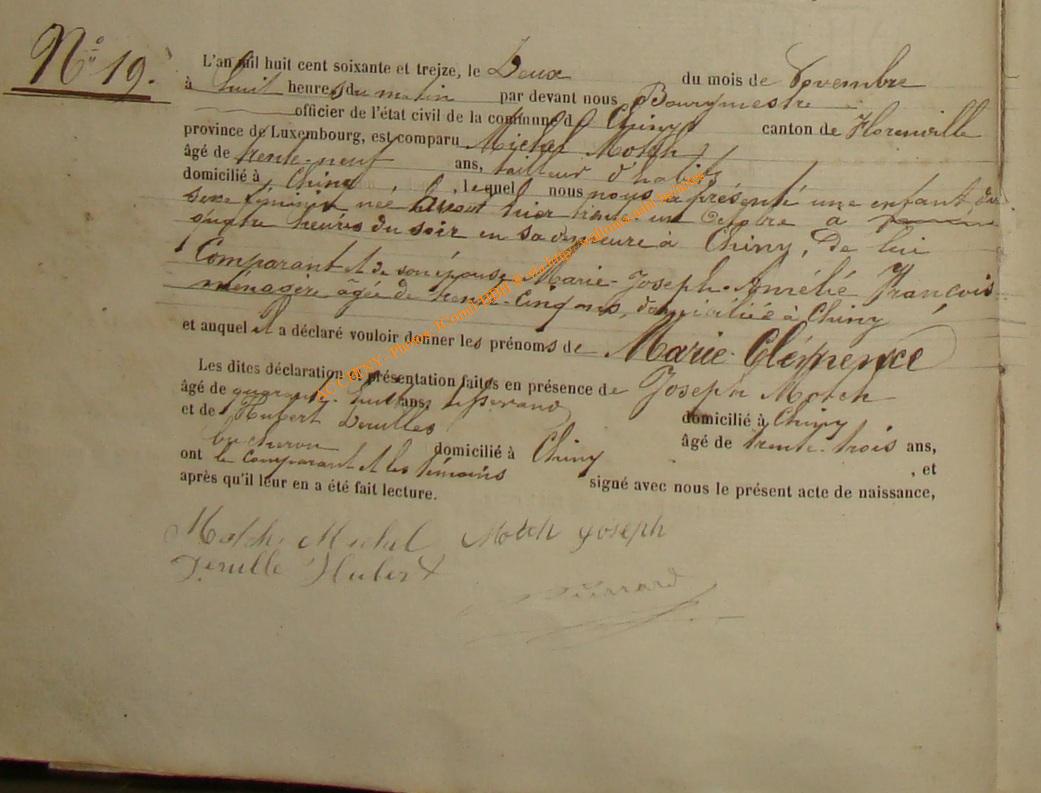 N° 19.
L'an mil huit cent soixante et treize, le Deux du mois de Novembre
à huit heures du matin par devant nous Bourgmestre
officier de l'état civil de la commune d Chiny canton de Florenville
province de Luxembourg, est comparu Michel Motch
âgé de trente-neuf ans, tailleur d'habits
domicilié à Chiny, lequel nous nous a présenté une enfant du
sexe féminin née avant hier trente un Octobre à
quatre heures du soir en sa demeure à Chiny, De lui
Comparant et de son épouse Marie-Joseph-Amélie François
ménagère âgée de trente-cinq ans, domiciliée à Chiny
et auquel il a déclaré vouloir donner les prénoms de Marie-Clémence
Les dites déclaration et présentation faites en présence de Joseph Motch
âgé de quarante-huit ans, domicilié à Chiny
et de Hubert Derulles âgé de trente-trois ans,
bucheron domicilié à Chiny, et
ont le comparant et les témoins signé avec nous le présent acte de naissance,
après qu'il leur en a été fait lecture.
Motch Michel Motch Joseph
Derulle Hubert